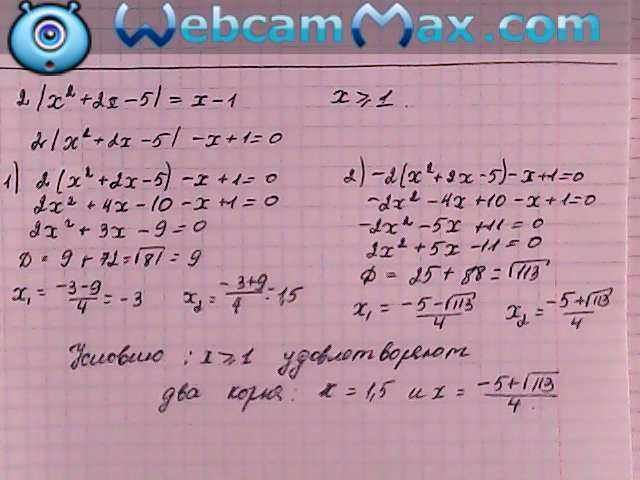 WebcamMax.com
2|x²+2x-5| = x-1 x ⩾ 1
2|x²+2x-5| -x+1=0
1) 2(x²+2x-5) -x+1=0
2x² +4x-10 -x+1=0
2x² +3x -9=0
D = 9 +72=√81 = 9
x₁ = (-3-9)/4 = -3 x₂ = (-3+9)/4 = 1,5
2) -2(x²+2x-5)-x+1=0
-2x² -4x+10 -x+1=0
-2x² -5x +11=0
2x² +5x -11=0
D = 25+88=√113
x₁ = (-5-√113)/4 x₂ = (-5+√113)/4
Условию : x ⩾ 1 удовлетворяют
два корня: x = 1,5 и x = (-5+√113)/4